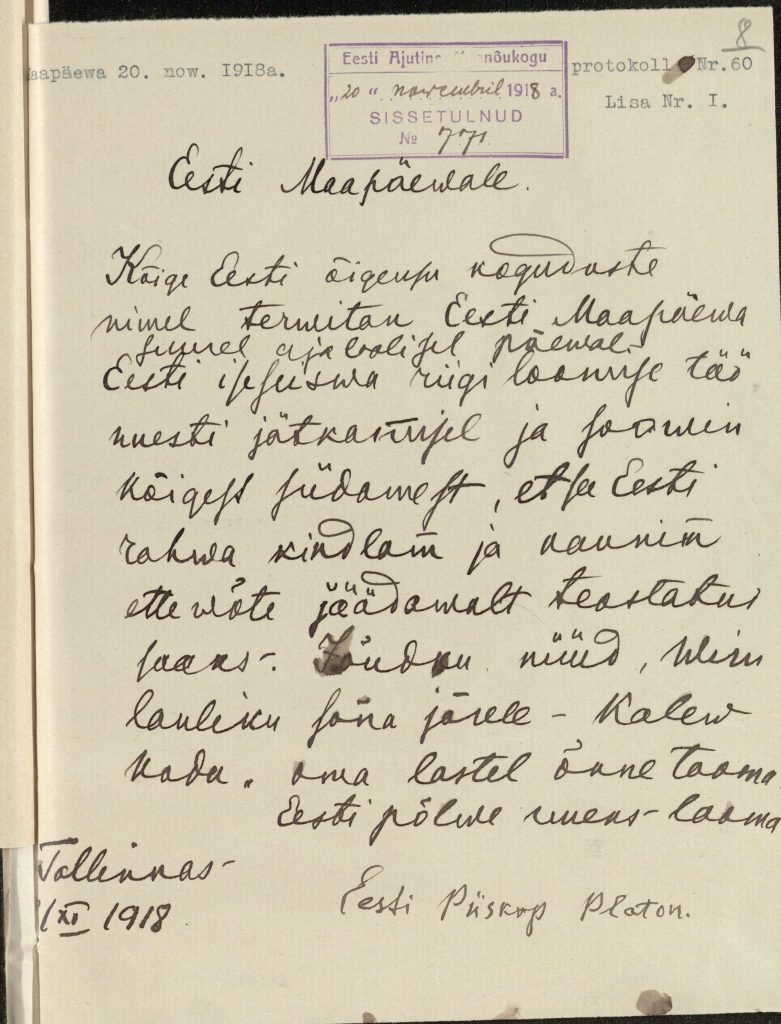 8
Maapäewa 20. now. 1918a.
protokoll Nr.60
Lisa Nr. I.
Eesti Ajutine Maanõukogu
„20" nowembril 1918 a.
SISSETULNUD
№ 771
Eesti Maapäewale.
Kõige Eesti õigeusu koguduste
nimel terwitan Eesti Maapäewa
suurel ajaloolisel päewal
Eesti iseseiswa riigi loomise töö
uuesti jätkamisel ja soowin
kõigest südamest, et see Eesti
rahwa kindlam ja kaunim
ettewõte jäädawalt teostatus
saaks. Jõudku nüüd, Wiru
lauliku sõna järele - Kalew
kodu. oma lastel õnne tooma
Eesti põlwe uueks looma
Tallinnas
XI 1918
Eesti Piiskop Platon.